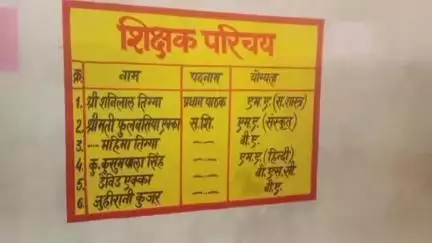 शिक्षक परिचय
क्र. नाम पदनाम योग्यता
1. श्री शनिलाल तिग्गा प्रधान पाठक एम.ए. (स.शास्त्र)
2. श्रीमती फुलबसिया एक्का स.शि. एम.ए. (संस्कृत)
3. -- महिमा तिग्गा --- बी.ए.
4. कु. कुसुमबाला सिंह --- एम.ए. (हिन्दी)
5. डेविड एक्का --- बी.एस.सी
6. जुहीरानी कुजर --- बी.ए.